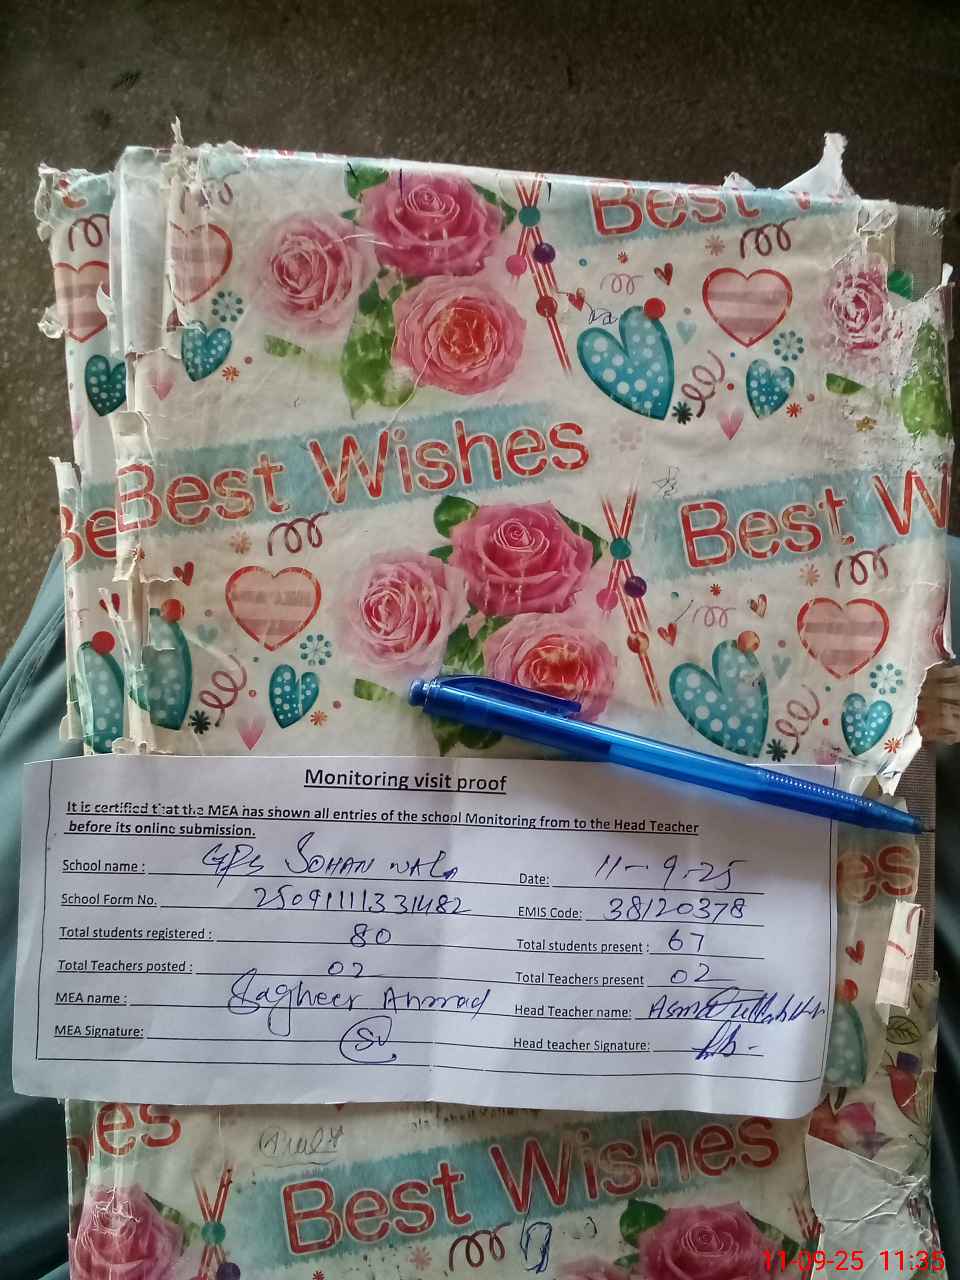 Best W
Best Wishes
Be
Best W
Monitoring visit proof
It is certified that the MEA has shown all entries of the school Monitoring from to the Head Teacher
before its online submission.
School name : GPS SOHAN WALA
Date: 11-9-25
School Form No. 25091111331482
EMIS Code: 38120378
Total students registered : 80
Total students present : 67
Total Teachers posted : 02
Total Teachers present 02
MEA name : Sagheer Ahmad
Head Teacher name:
MEA Signature:
Head teacher Signature:
es
hes
Best Wishes
11-09-25 11:35